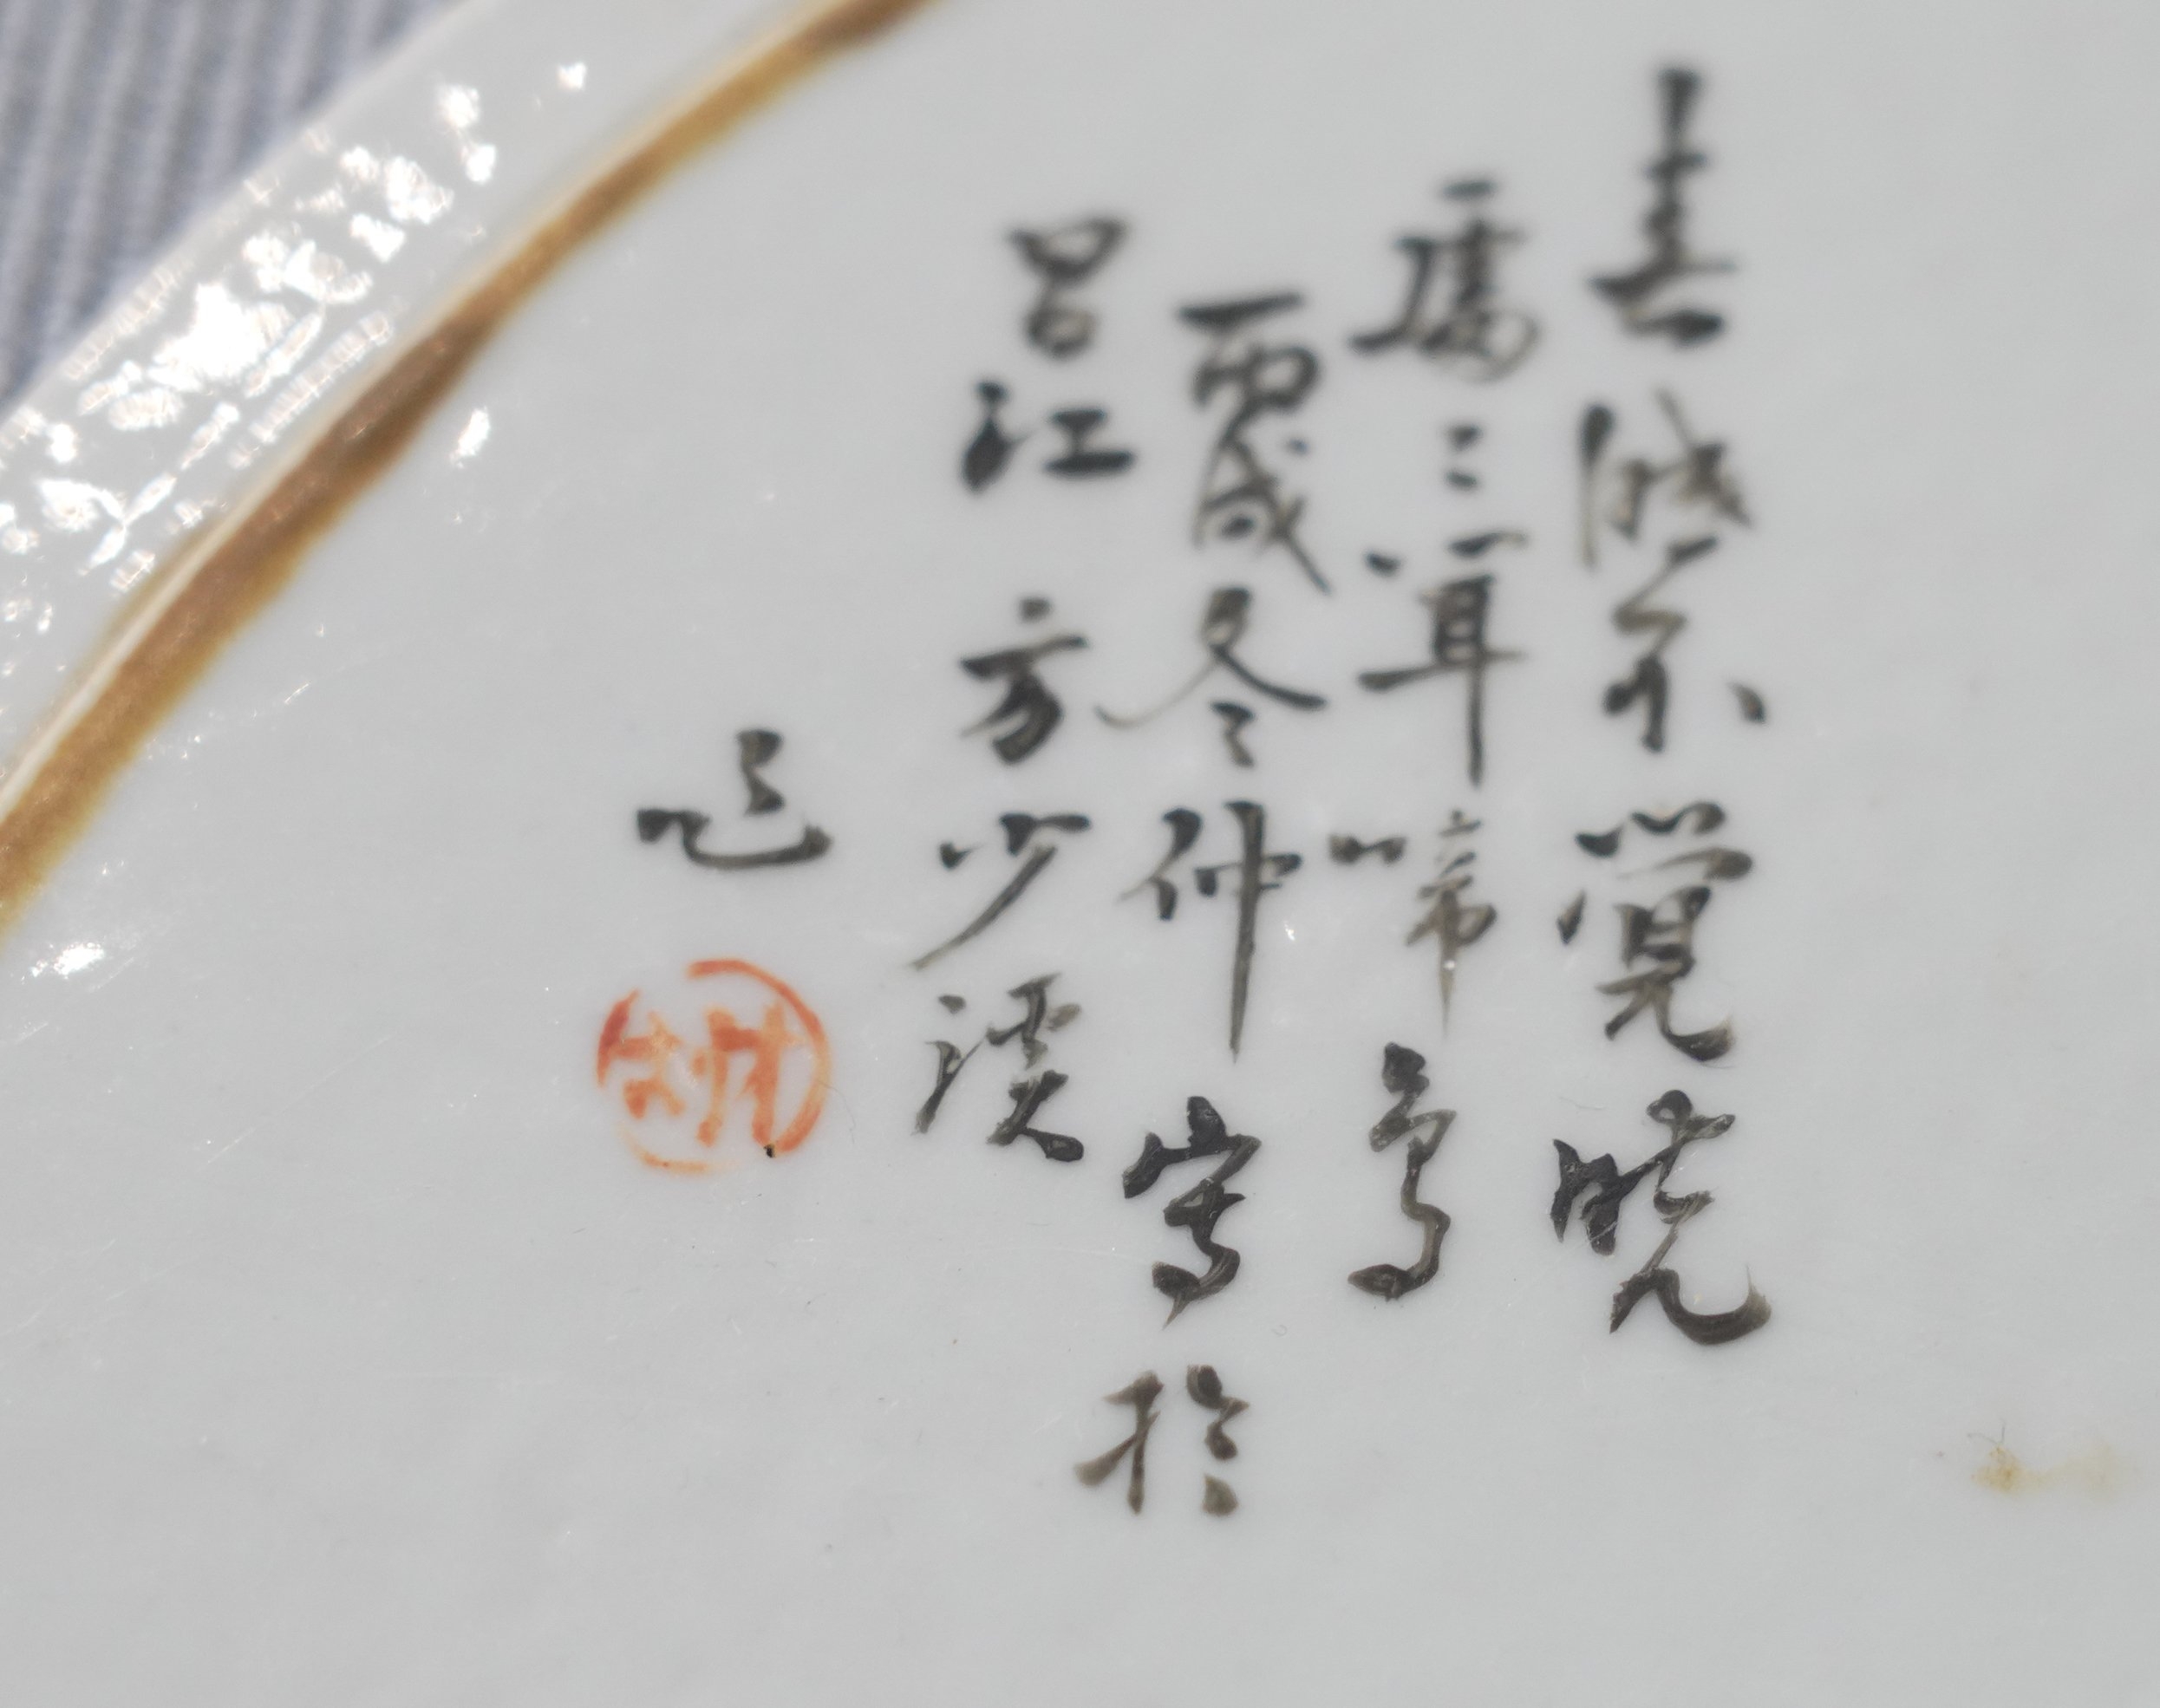 春眠不覺曉
處〻聞啼鳥
丙戌冬仲寫於
昌江 方少溪